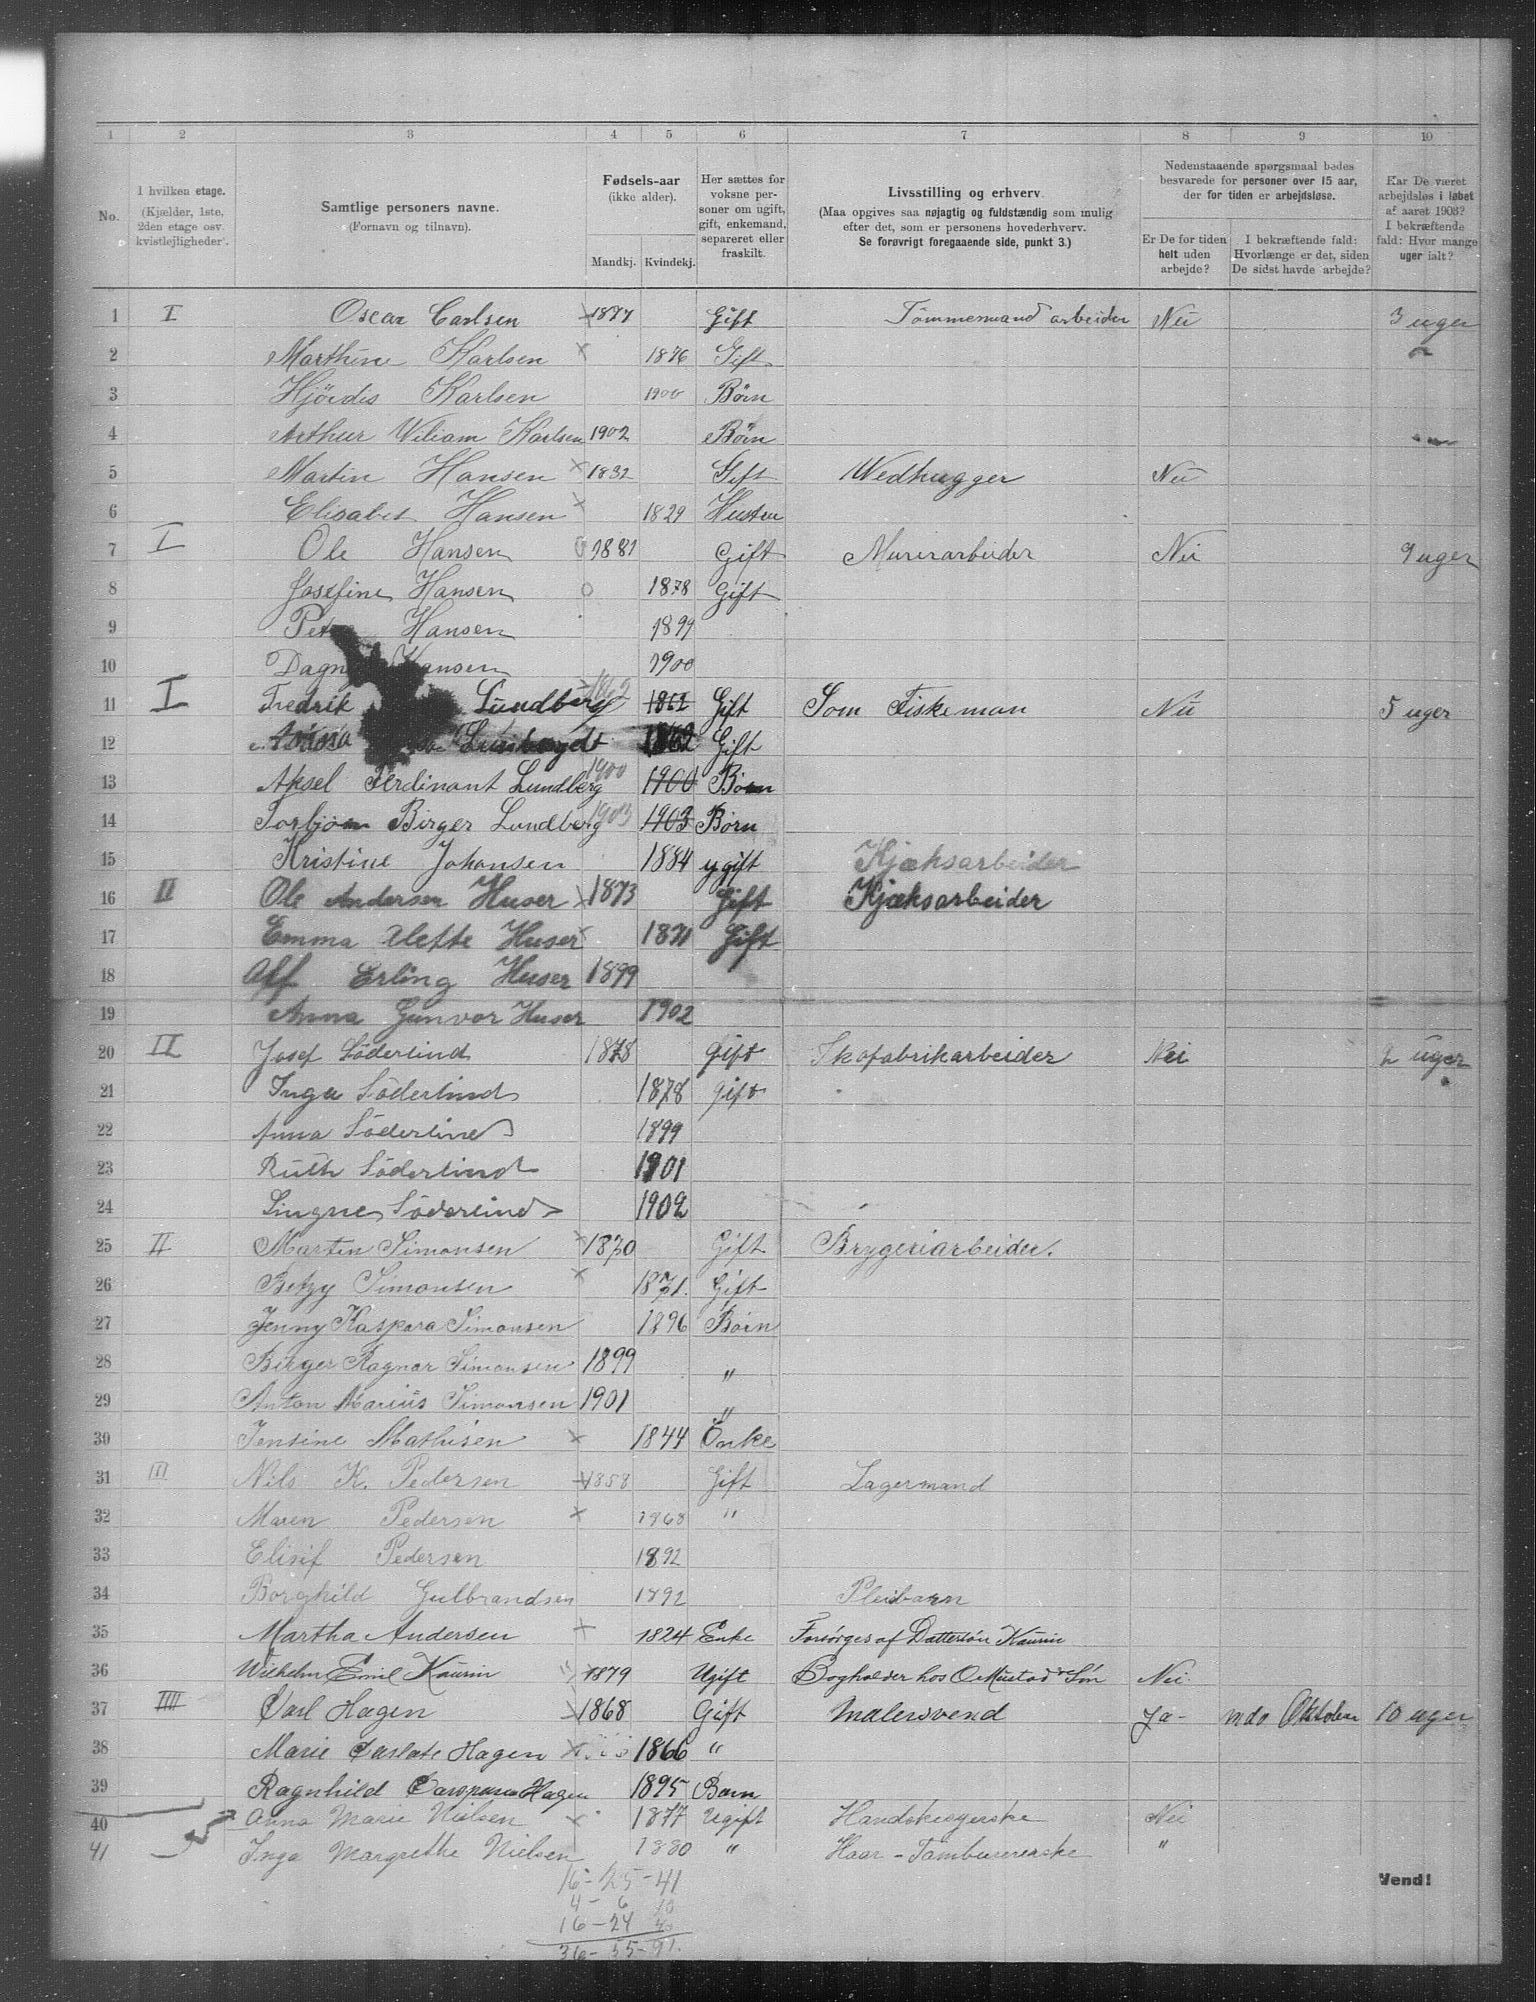 1 2 3 4 5 6 7 8 9 10
No.
I hvilken etage. (Kjælder, 1ste, 2den etage osv. kvistlejligheder).
Samtlige personers navne. (Fornavn og tilnavn).
Fødsels-aar (ikke alder).
Mandkj. Kvindekj.
Her sættes for voksne personer om ugift, gift, enkemand, separeret eller fraskilt.
Livsstilling og erhverv.
(Maa opgives saa nøjagtig og fuldstændig som mulig efter det, som er personens hovederhverv.
Se forøvrigt foregaaende side, punkt 3.)
Nedenstaaende spørgsmaal bedes besvarede for personer over 15 aar, der for tiden er arbejdsløse.
Er De for tiden helt uden arbejde?
I bekræftende fald: Hvorlænge er det, siden De sidst havde arbejde?
Har De været arbejdsløs i løbet af aaret 1903? I bekræftende fald: Hvor mange uger ialt?
1 I Oscar Carlsen 1877 Gift Tömmermand arbeider Nei 3 uger
2 Marthine Karlsen × 1876 Gift
3 Hjördis Karlsen 1900 Börn
4 Arthur Wiliam Karlsen 1902 Börn
5 Martin Hansen × 1832 Gift Wedhugger Nei
6 Elisabet Hansen × 1829 Hustru
7 I Ole Hansen 1881 Gift Murerarbeider Nei 9 uger
8 Josefine Hansen o 1878 Gift
9 Hansen 1899
10 Dagny Hansen 1900
11 I Fredrik Lundberg 1862 1862 Gift Som Fiskeman Nei 5 uger
12 1862 Gift
13 Aksel Ferdinant Lundberg 1900 1900 Börn
14 Torbjörn Birger Lundberg 1903 1903 Börn
15 Kristine Johansen 1884 ygift Kjæksarbeider
16 II Ole Andersen Huser × 1873 Gift Kjæksarbeider
17 Emma Alette Huser × 1871 Gift
18 Alf Erling Huser 1899
19 Anna Gunvor Huser 1902
20 II Josef Söderlind 1878 Gift Skofabrikarbeider Nei 2 uger
21 Inga Söderlind 1878 Gift
22 Anna Söderlind 1899
23 Ruth Söderlind 1901
24 Singne Söderlind 1902
25 II Martin Simonsen × 1870 Gift Brygeriarbeider.
26 Betzy Simonsen × 1871. Gift
27 Jenny Kaspara Simonsen 1896 Börn
28 Birger Ragnar Simonsen 1899 "
29 Anton Marius Simonsen 1901 "
30 Jensine Mathisen × 1844 Enke
31 III Nils K. Pedersen × 1858 Gift Lagermand
32 Maren Pedersen × 1868 "
33 Elisif Pedersen 1892
34 Borghild Gulbrandsen 1892 Pleibarn
35 Martha Andersen × 1824 Enke Forsörges af Dattersön Kaurin
36 Wilhelm Emil Kaurin 1879 Ugift Bogholder hos O Mustad & Sön Nei.
37 IIII Carl Hagen × 1868 Gift Malersvend Ja- Oktober 10 uger
38 Marie Hagen × 1866 "
39 Ragnhild Hagen 1895 Barn
40 Anna Marie Nielsen × 1877 Ugift Handskesyerske Nei
41 Inga Margrethe Nielsen 1880 " Haar-Tambusererske "
16-25-41
4-6 10
16-24 40
36-55-91.
Vend!